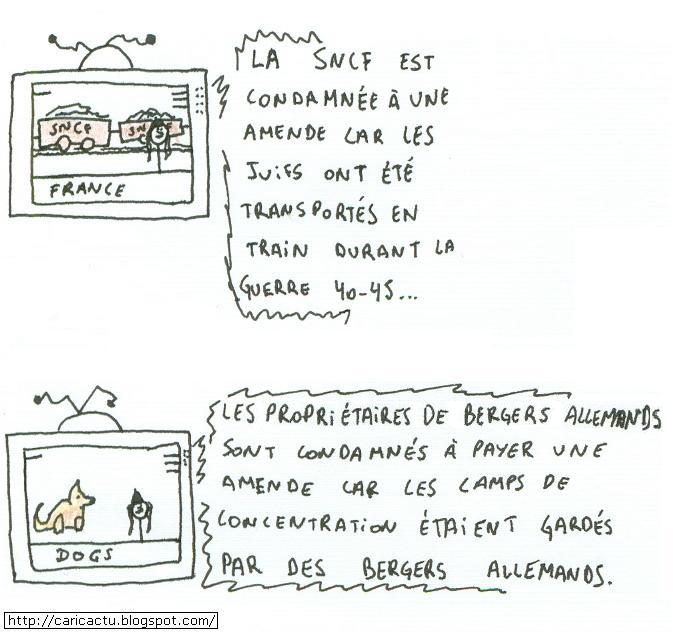 LA SNCF EST
CONDAMNÉE À UNE
AMENDE CAR LES
JUIFS ONT ÉTÉ
TRANSPORTÉS EN
TRAIN DURANT LA
GUERRE 40-45...
SNCF
FRANCE
LES PROPRIÉTAIRES DE BERGERS ALLEMANDS
SONT CONDAMNÉS À PAYER UNE
AMENDE CAR LES CAMPS DE
CONCENTRATION ÉTAIENT GARDÉS
PAR DES BERGERS ALLEMANDS.
DOGS
http://caricactu.blogspot.com/